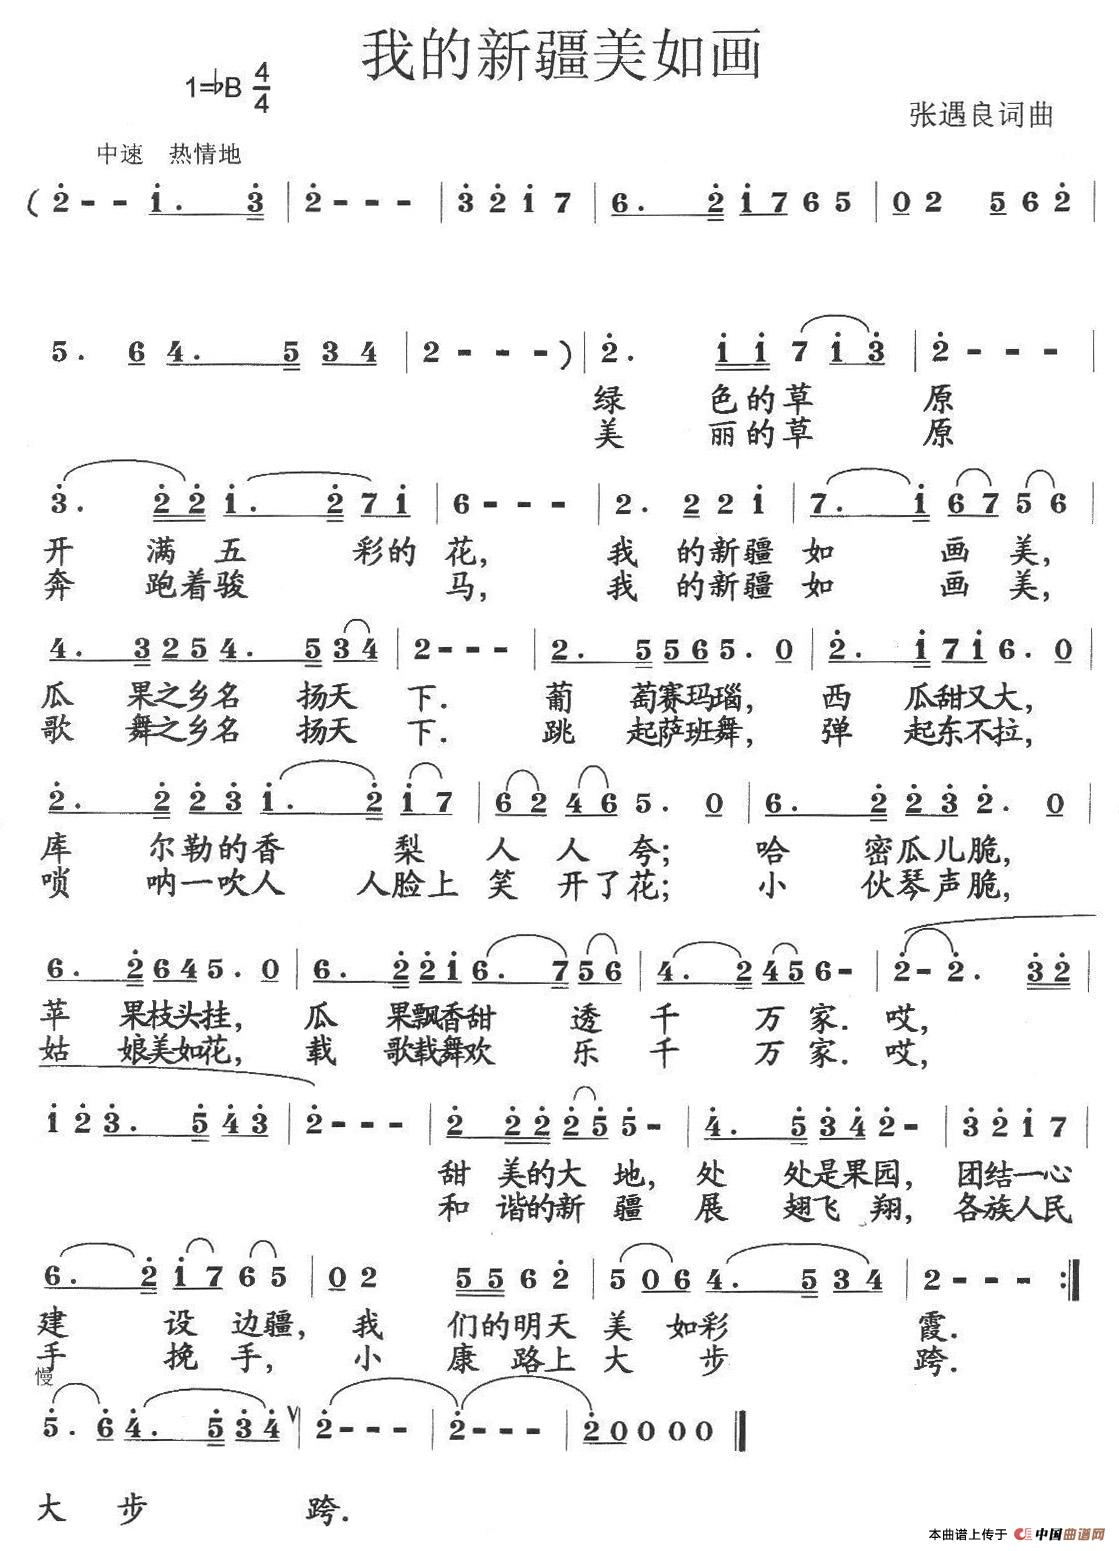 我的新疆美如画
1=♭B 4/4
张遇良词曲
中速 热情地
( 2̇ - - 1̇. 3̇ | 2̇ - - - | 3̇ 2̇ 1̇ 7 | 6. 2̇ 1̇ 7 6 5 | 0 2 5 6 2̇ |
5. 6 4. 5 3 4 | 2 - - - ) | 2̇. 1̇ 1̇ 7 1̇ 3̇ | 2̇ - - - |
绿 色的草 原
美 丽的草 原
3̇. 2̇ 2̇ 1̇. 2̇ 7 1̇ | 6 - - - | 2. 2 2 1̇ | 7. 1̇ 6 7 5 6 |
开 满 五 彩的 花, 我 的新疆 如 画 美,
奔 跑着骏 马, 我 的新疆 如 画 美,
4. 3 2 5 4. 5 3 4 | 2 - - - | 2. 5 5 6 5. 0 | 2̇. 1̇ 7 1̇ 6. 0 |
瓜 果之乡名 扬天 下. 葡 萄赛玛瑙, 西 瓜甜又大,
歌 舞之乡名 扬天 下. 跳 起萨班舞, 弹 起东不拉,
2̇. 2̇ 2̇ 3̇ 1̇. 2̇ 1̇ 7 | 6 2 4 6 5. 0 | 6. 2̇ 2̇ 3̇ 2̇. 0 |
库 尔勒的香 梨 人 人 夸; 哈 密瓜儿脆,
唢 呐一吹人 人脸上 笑 开了花; 小 伙琴声脆,
6. 2̇ 6 4 5. 0 | 6. 2̇ 2̇ 1̇ 6. 7 5 6 | 4. 2 4 5 6 - | 2̇ - 2̇. 3̇ 2̇ |
苹 果枝头挂, 瓜 果飘香甜 透 千 万 家. 哎,
姑 娘美如花, 载 歌载舞欢 乐 千 万 家. 哎,
1̇ 2̇ 3̇. 5̇ 4̇ 3̇ | 2̇ - - - | 2̇ 2̇ 2̇ 2̇ 5̇ 5̇ - | 4̇. 5̇ 3̇ 4̇ 2̇ - | 3̇ 2̇ 1̇ 7 |
甜 美的大 地, 处 处是果园, 团结一心
和 谐的新 疆 展 翅飞 翔, 各族人民
6. 2̇ 1̇ 7 6 5 | 0 2 5 5 6 2̇ | 5 0 6 4. 5 3 4 | 2 - - - :‖
建 设 边疆, 我 们的明天 美 如彩 霞.
手 挽 手, 小 康 路上 大 步 跨.
慢
5̇. 6̇ 4̇. 5̇ 3̇ 4̇ ∨ | 2̇ - - - | 2̇ - - - | 2̇ 0 0 0 0 ‖
大 步 跨.
本曲谱上传于 中国曲谱网